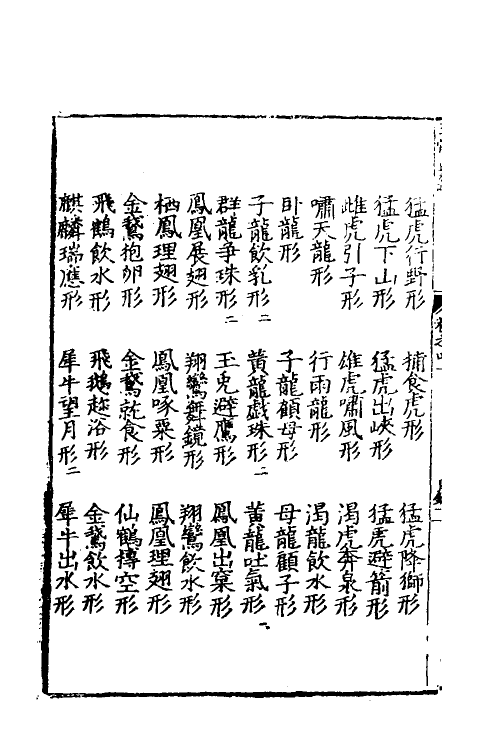 猛虎行野形　捕食虎形　猛虎降獅形
猛虎下山形　猛虎出峽形　猛虎避箭形
雌虎引子形　雄虎嘯風形　渴虎奔泉形
嘯天龍形　行雨龍形　渴龍飲水形
卧龍形　子龍顧母形　母龍顧子形
子龍飲乳形二　黄龍戲珠形二　黄龍吐氣形
群龍爭珠形二　玉兎避鷹形　鳳凰出窠形
鳳凰展翅形　翔鸞舞鏡形　翔鸞飲水形
栖鳳理翅形　鳳凰啄粟形　鳳凰理翅形
金鵞抱卵形　金鵞就食形　仙鶴摶空形
飛鵝飲水形　飛鵝趂浴形　金鵞飲水形
麒麟瑞應形　犀牛望月形二　犀牛出水形